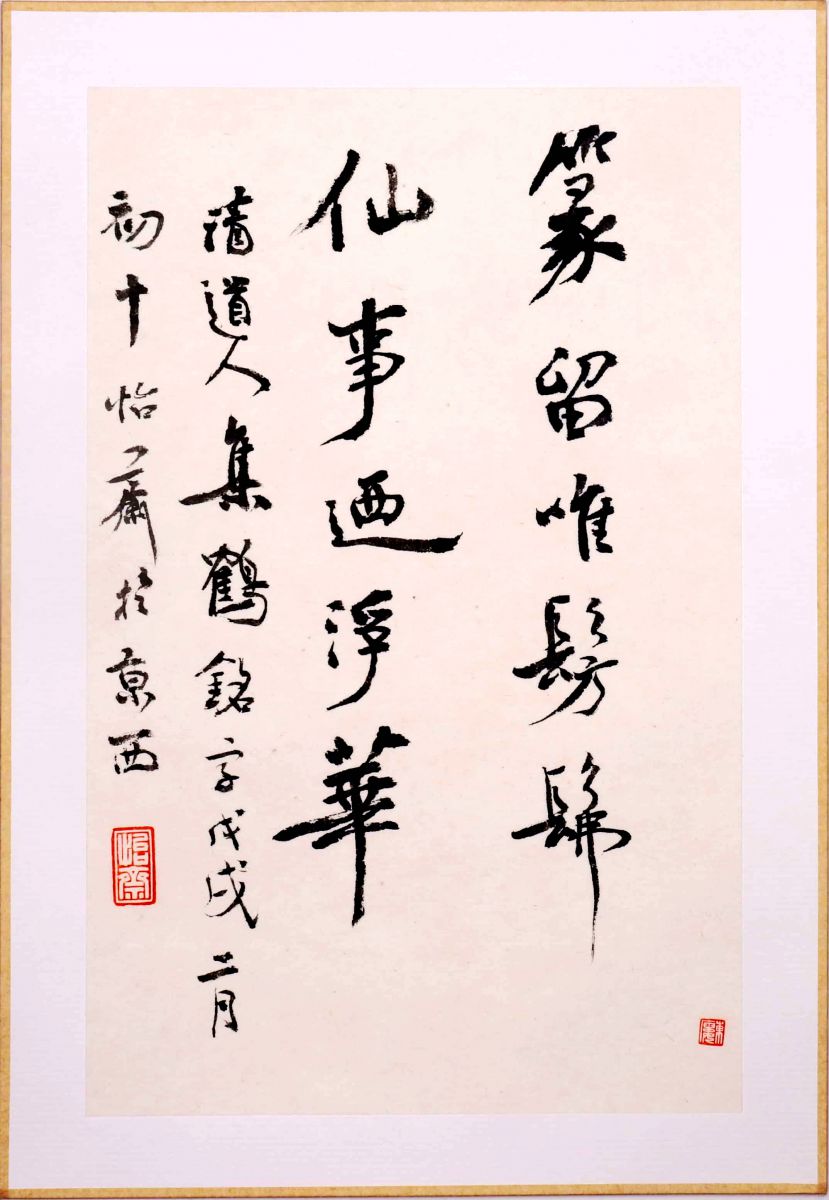 篆留唯髣髴
仙事迺浮華
清道人集鶴銘字戊戌二月
初十怡齋於京西
怡齋